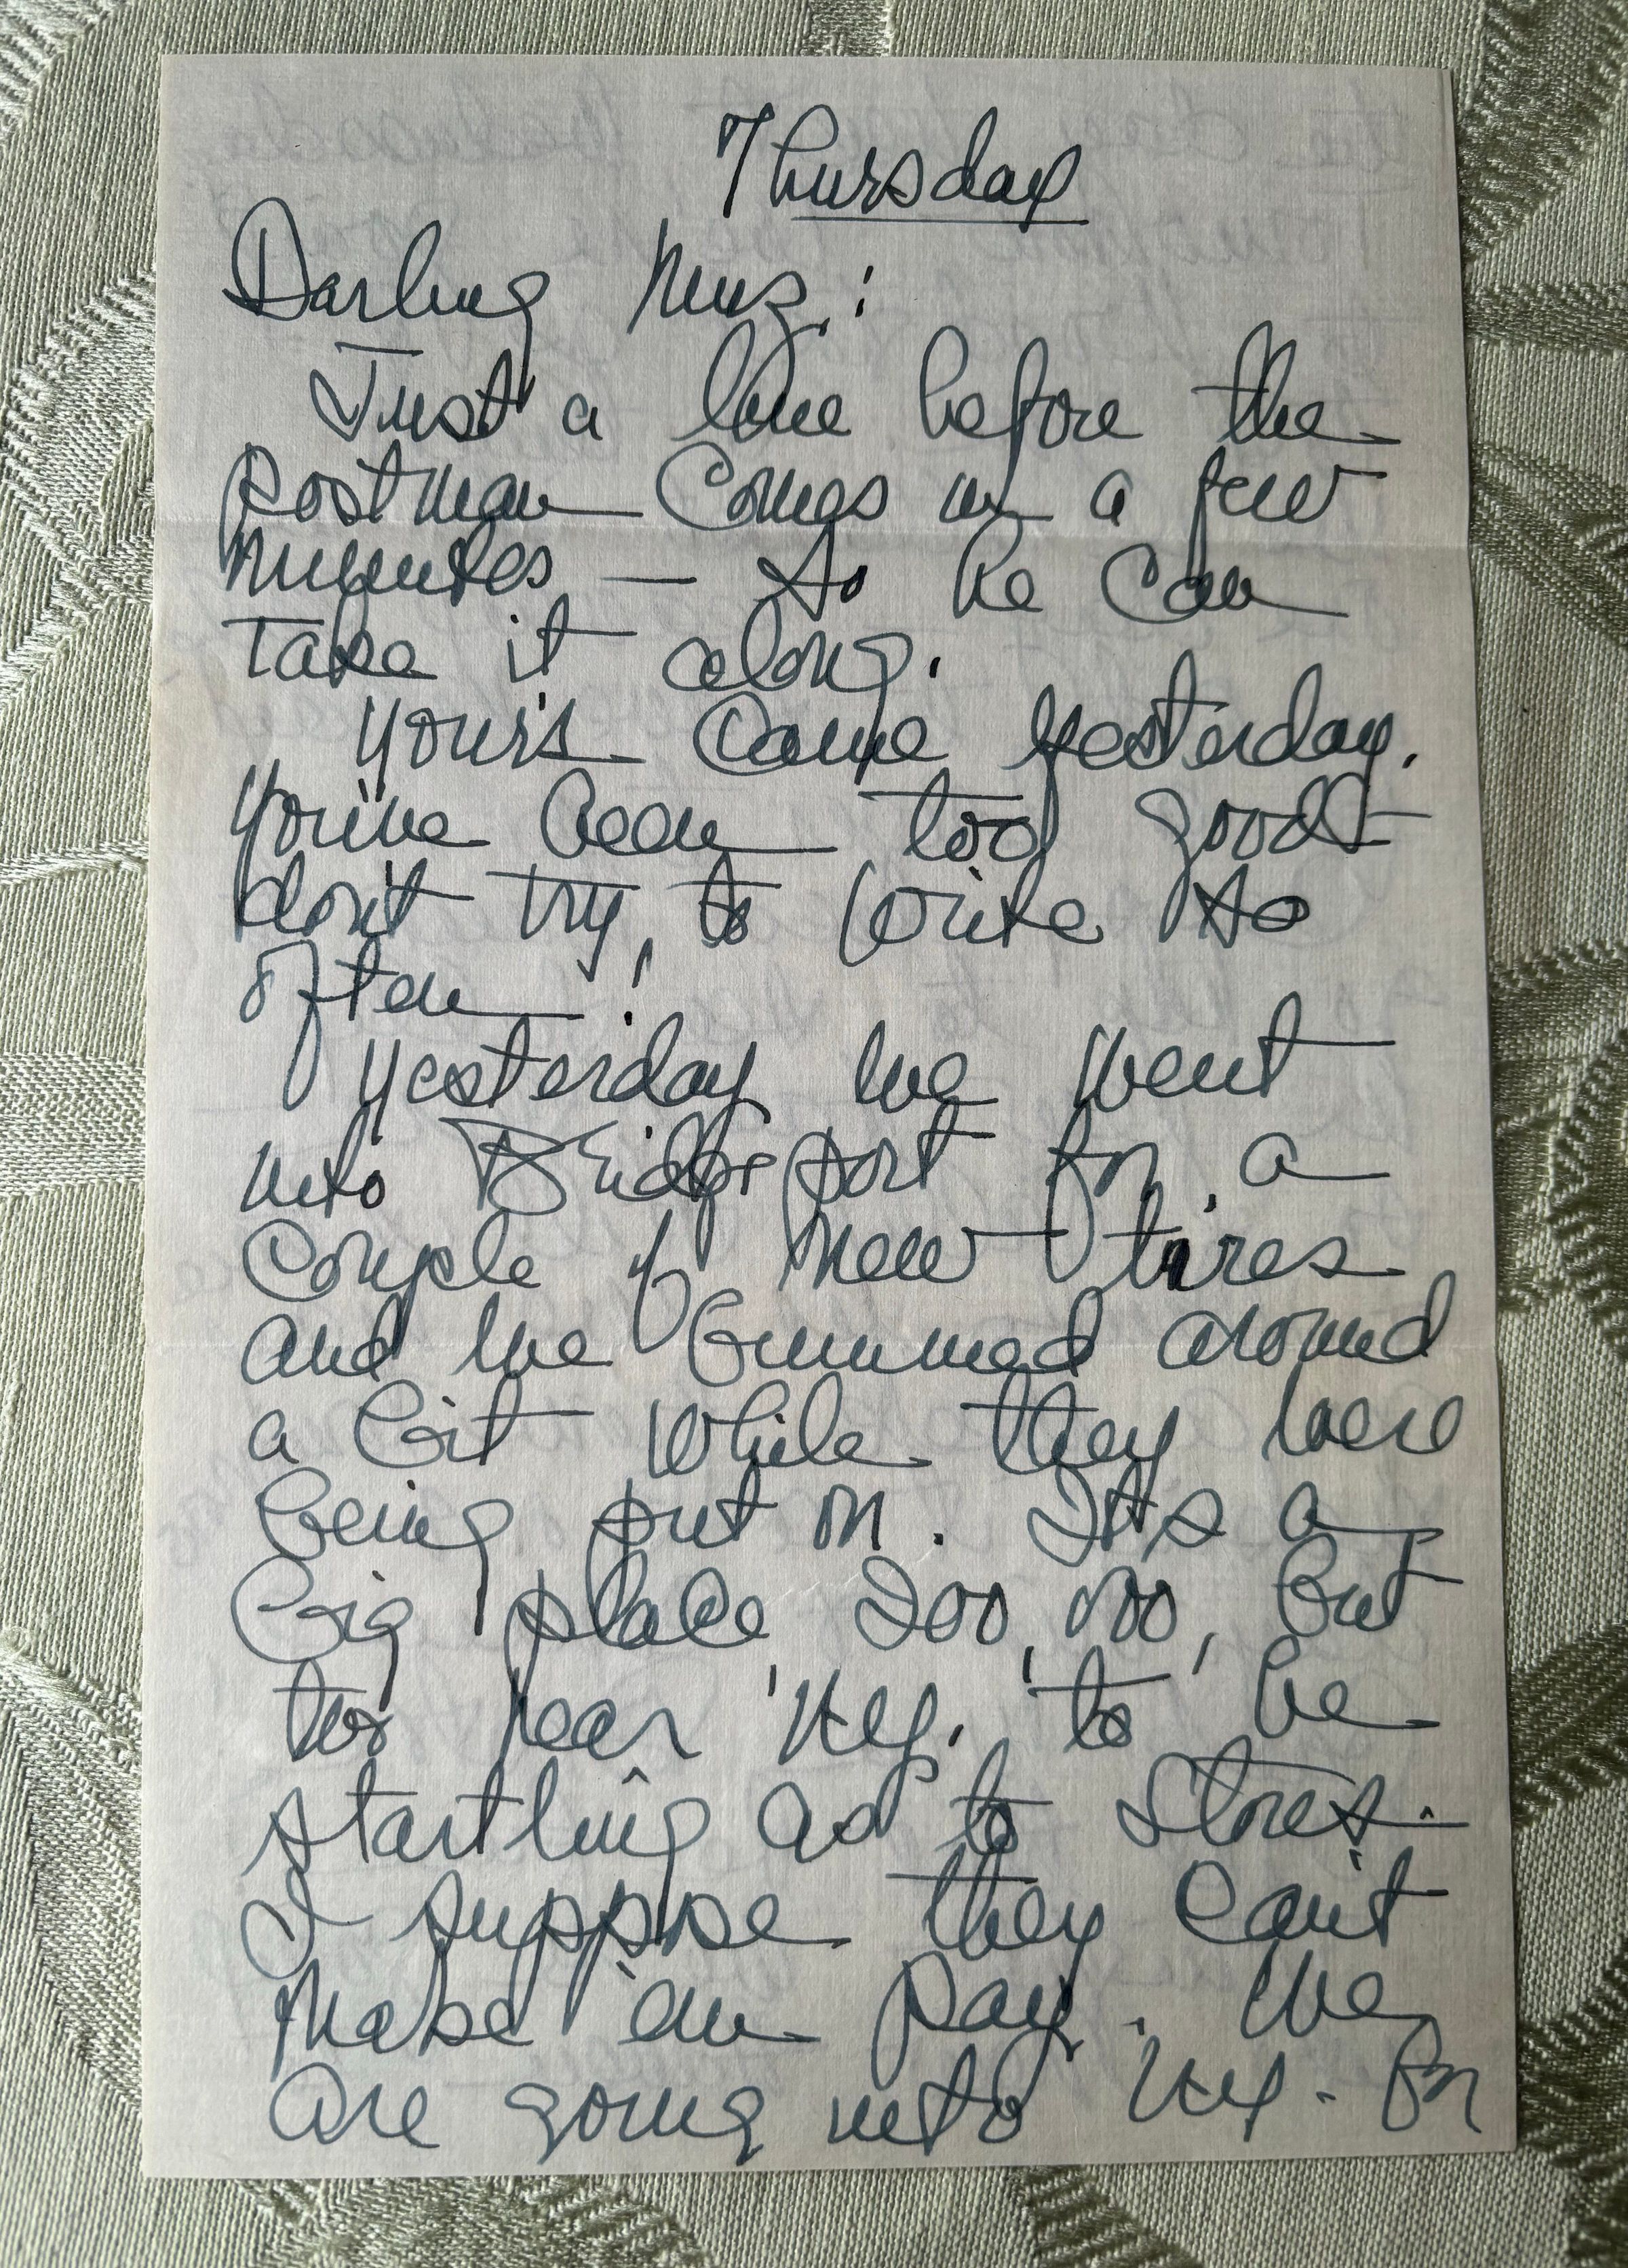 Thursday
Darling
Just a line before the
postman comes in a few
minutes — so he can
take it along.
Your's came yesterday.
You've been too good
don't try to write so
often!
Yesterday we went
into Bridgeport for a
couple of new tires
and we bummed around
a bit while they were
being put on. It's a
big place 200,000, but
too near N.Y. to be
startling as to stores.
I suppose they can't
make 'em pay. We
are going into N.Y. for